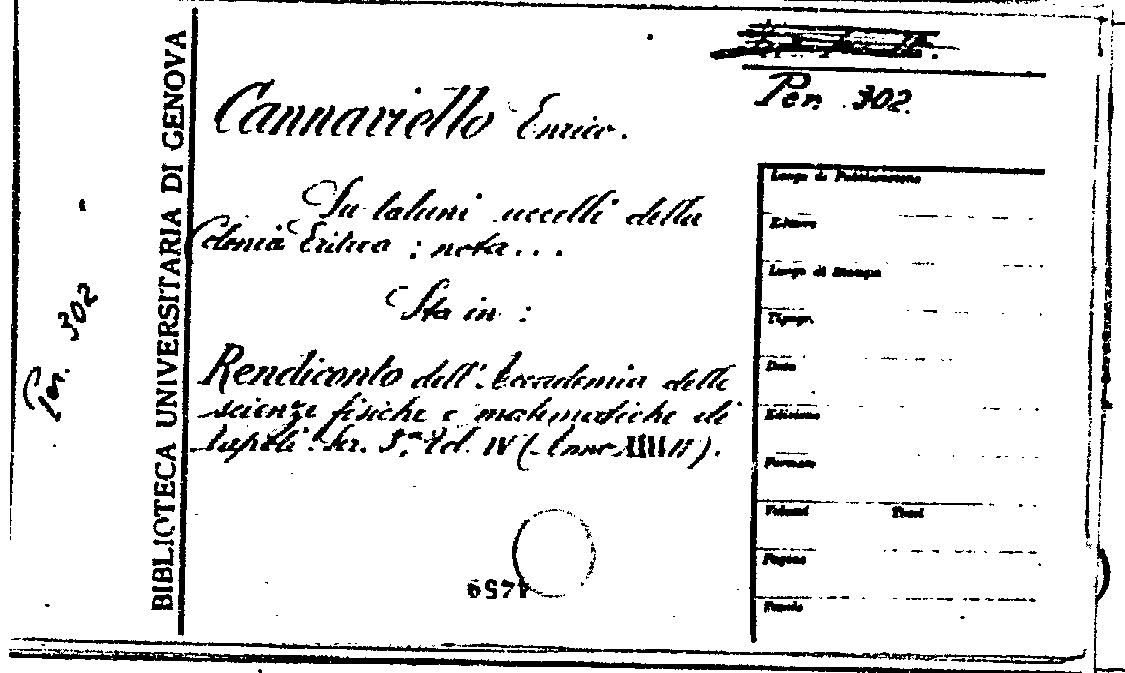 BIBLIOTECA UNIVERSITARIA DI GENOVA
Per. 302
Per. 302.
Cannaviello Enrico.
Su taluni uccelli della
Colonia Eritrea : nota...
Sta in :
Rendiconto dell'Accademia delle
scienze fisiche e matematiche di
Napoli. Ser. 3.ª Vol. IV (Anno
Luogo di Pubblicazione
Editore
Luogo di Stampa
Tipogr.
Data
Edizione
Formato
Volumi Tomi
Pagine
Tavole